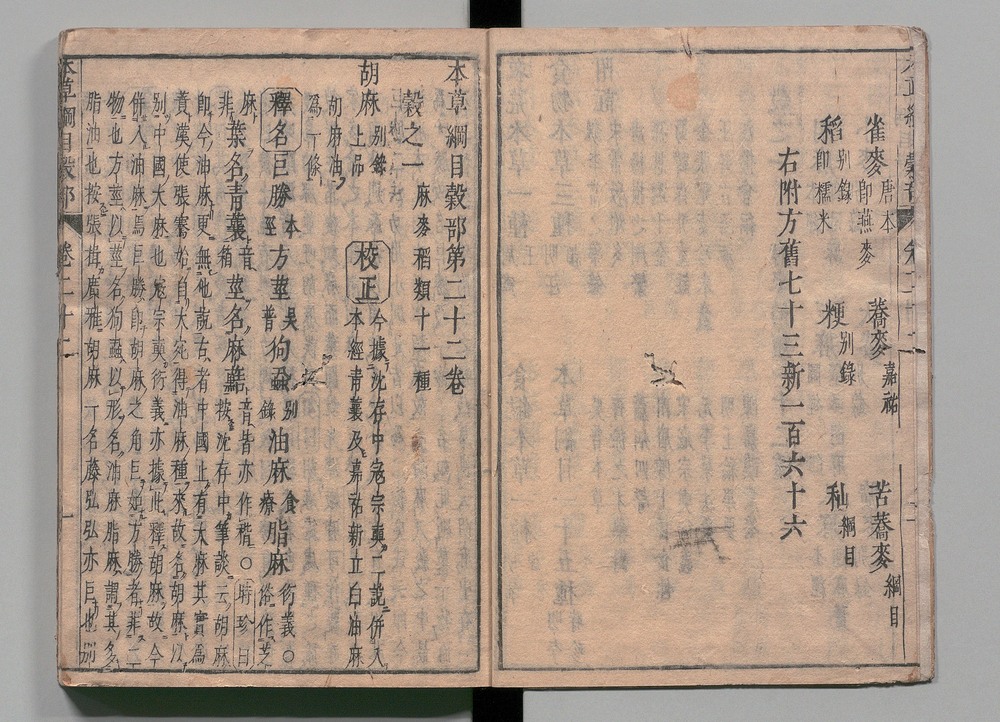 雀麥 唐本 即燕麥 蕎麥 嘉祐 苦蕎麥 綱目
稻 別錄 即糯米 粳 別錄 秈 綱目
右附方舊七十三新一百六十六
本草綱目穀部第二十二卷
穀之一 麻麥稻類十一種
胡麻 別錄上品 校正 今據沈存中寇宗奭二說併入本經青蘘及嘉祐新立白油麻
胡麻油爲一條
釋名 巨勝 本經 方莖 吳普 狗蝨 別錄 油麻 食療 脂麻 衍義○俗作芝
麻非 葉名青蘘 音箱 莖名麻䕸 音皆亦作稭○時珍曰
按沈存中筆談云胡麻
即今油麻更無他說古者中國止有大麻其實爲
蕡漢使張騫始自大宛得油麻種來故名胡麻以
別中國大麻也寇宗奭衍義亦據此釋胡麻故今
併入油麻焉巨勝即胡麻之角巨如方勝者非二
物也方莖以莖名狗蝨以形名油麻脂麻謂其多
脂油也按張揖廣雅胡麻一名藤弘弘亦巨也別
本草綱目穀部 卷二十二 一